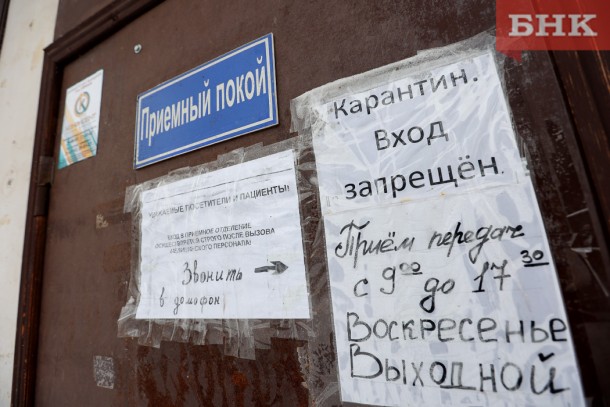 БНК
Приемный покой
УВАЖАЕМЫЕ ПОСЕТИТЕЛИ И ПАЦИЕНТЫ!
ВХОД В ПРИЕМНОЕ ОТДЕЛЕНИЕ
ОСУЩЕСТВЛЯЕТСЯ СТРОГО ПОСЛЕ ВЫЗОВА
МЕДИЦИНСКОГО ПЕРСОНАЛА!
Звонить →
в домофон
Карантин.
Вход
запрещён.
Приём передач
с 9 00 до 17 30
Воскресенье
Выходной